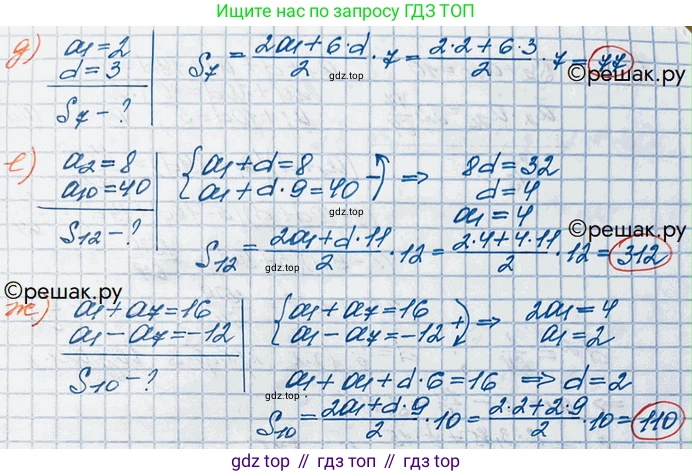 Ищите нас по запросу ГДЗ ТОП
д) a₁=2
d=3
S₇ - ?
S₇ = (2a₁+6·d)/2 · 7 = (2·2+6·3)/2 · 7 = 77
gdz.top
©решак.ру
е) a₂=8
a₁₀=40
S₁₂ - ?
{a₁+d=8
a₁+d·9=40 -) ⇒ 8d=32
d=4
a₁=4
gdz.top
©решак.ру
S₁₂ = (2a₁+d·11)/2 · 12 = (2·4+4·11)/2 · 12 = 312
gdz.top
©решак.ру
ж) a₁+a₇=16
a₁-a₇=-12
S₁₀ - ?
{a₁+a₇=16
a₁-a₇=-12 + ⇒ 2a₁=4
a₁=2
gdz.top
a₁+a₁+d·6=16 ⇒ d=2
gdz.top
S₁₀ = (2a₁+d·9)/2 · 10 = (2·2+2·9)/2 · 10 = 110
gdz.top // гдз.top // gdz.top // гдз.top